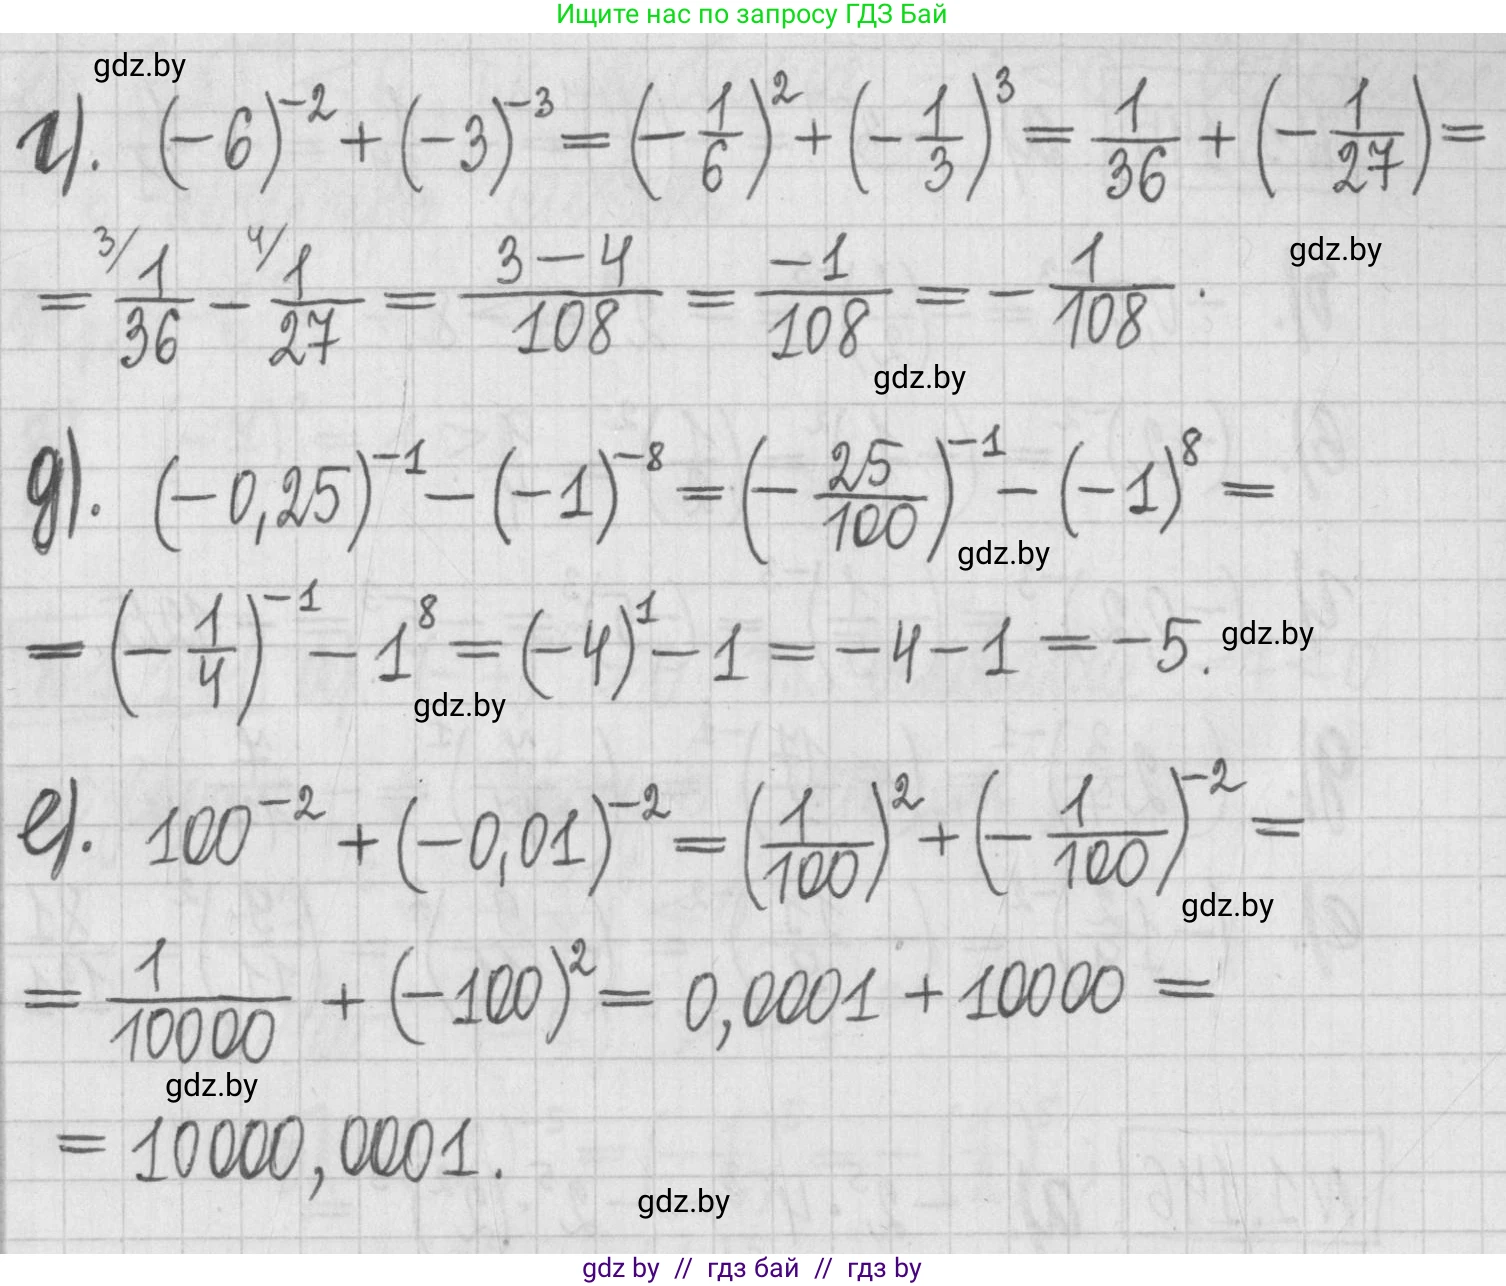 Ищите нас по запросу ГДЗ Бай
gdz.by
г). (-6)^{-2} + (-3)^{-3} = (-1/6)^2 + (-1/3)^3 = 1/36 + (-1/27) =
= ^{3/}1/36 - ^{4/}1/27 = (3-4)/108 = -1/108 = -1/108.
gdz.by
gdz.by
д). (-0,25)^{-1} - (-1)^{-8} = (-25/100)^{-1} - (-1)^8 =
gdz.by
= (-1/4)^{-1} - 1^8 = (-4)^1 - 1 = -4-1 = -5.
gdz.by
gdz.by
е). 100^{-2} + (-0,01)^{-2} = (1/100)^2 + (-1/100)^{-2} =
gdz.by
= 1/10000 + (-100)^2 = 0,0001 + 10000 =
gdz.by
= 10000,0001.
gdz.by
gdz by // гдз бай // гдз by